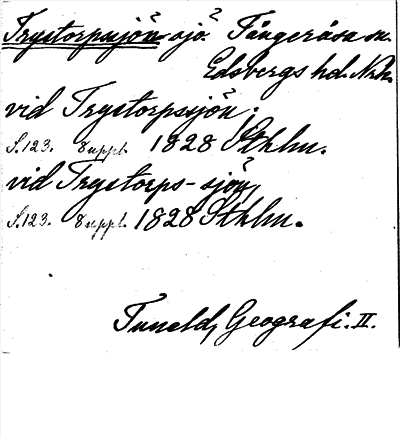 Trystorpssjön sjö? Tångeråsa sn.
Edsbergs hd. Nrk.
vid Trystorpssjön;
S.123. Suppl. 1828 Sthlm.
vid Trystorps-sjön,
S.123. Suppl. 1828 Sthlm.
Tuneld, Geografi. II.